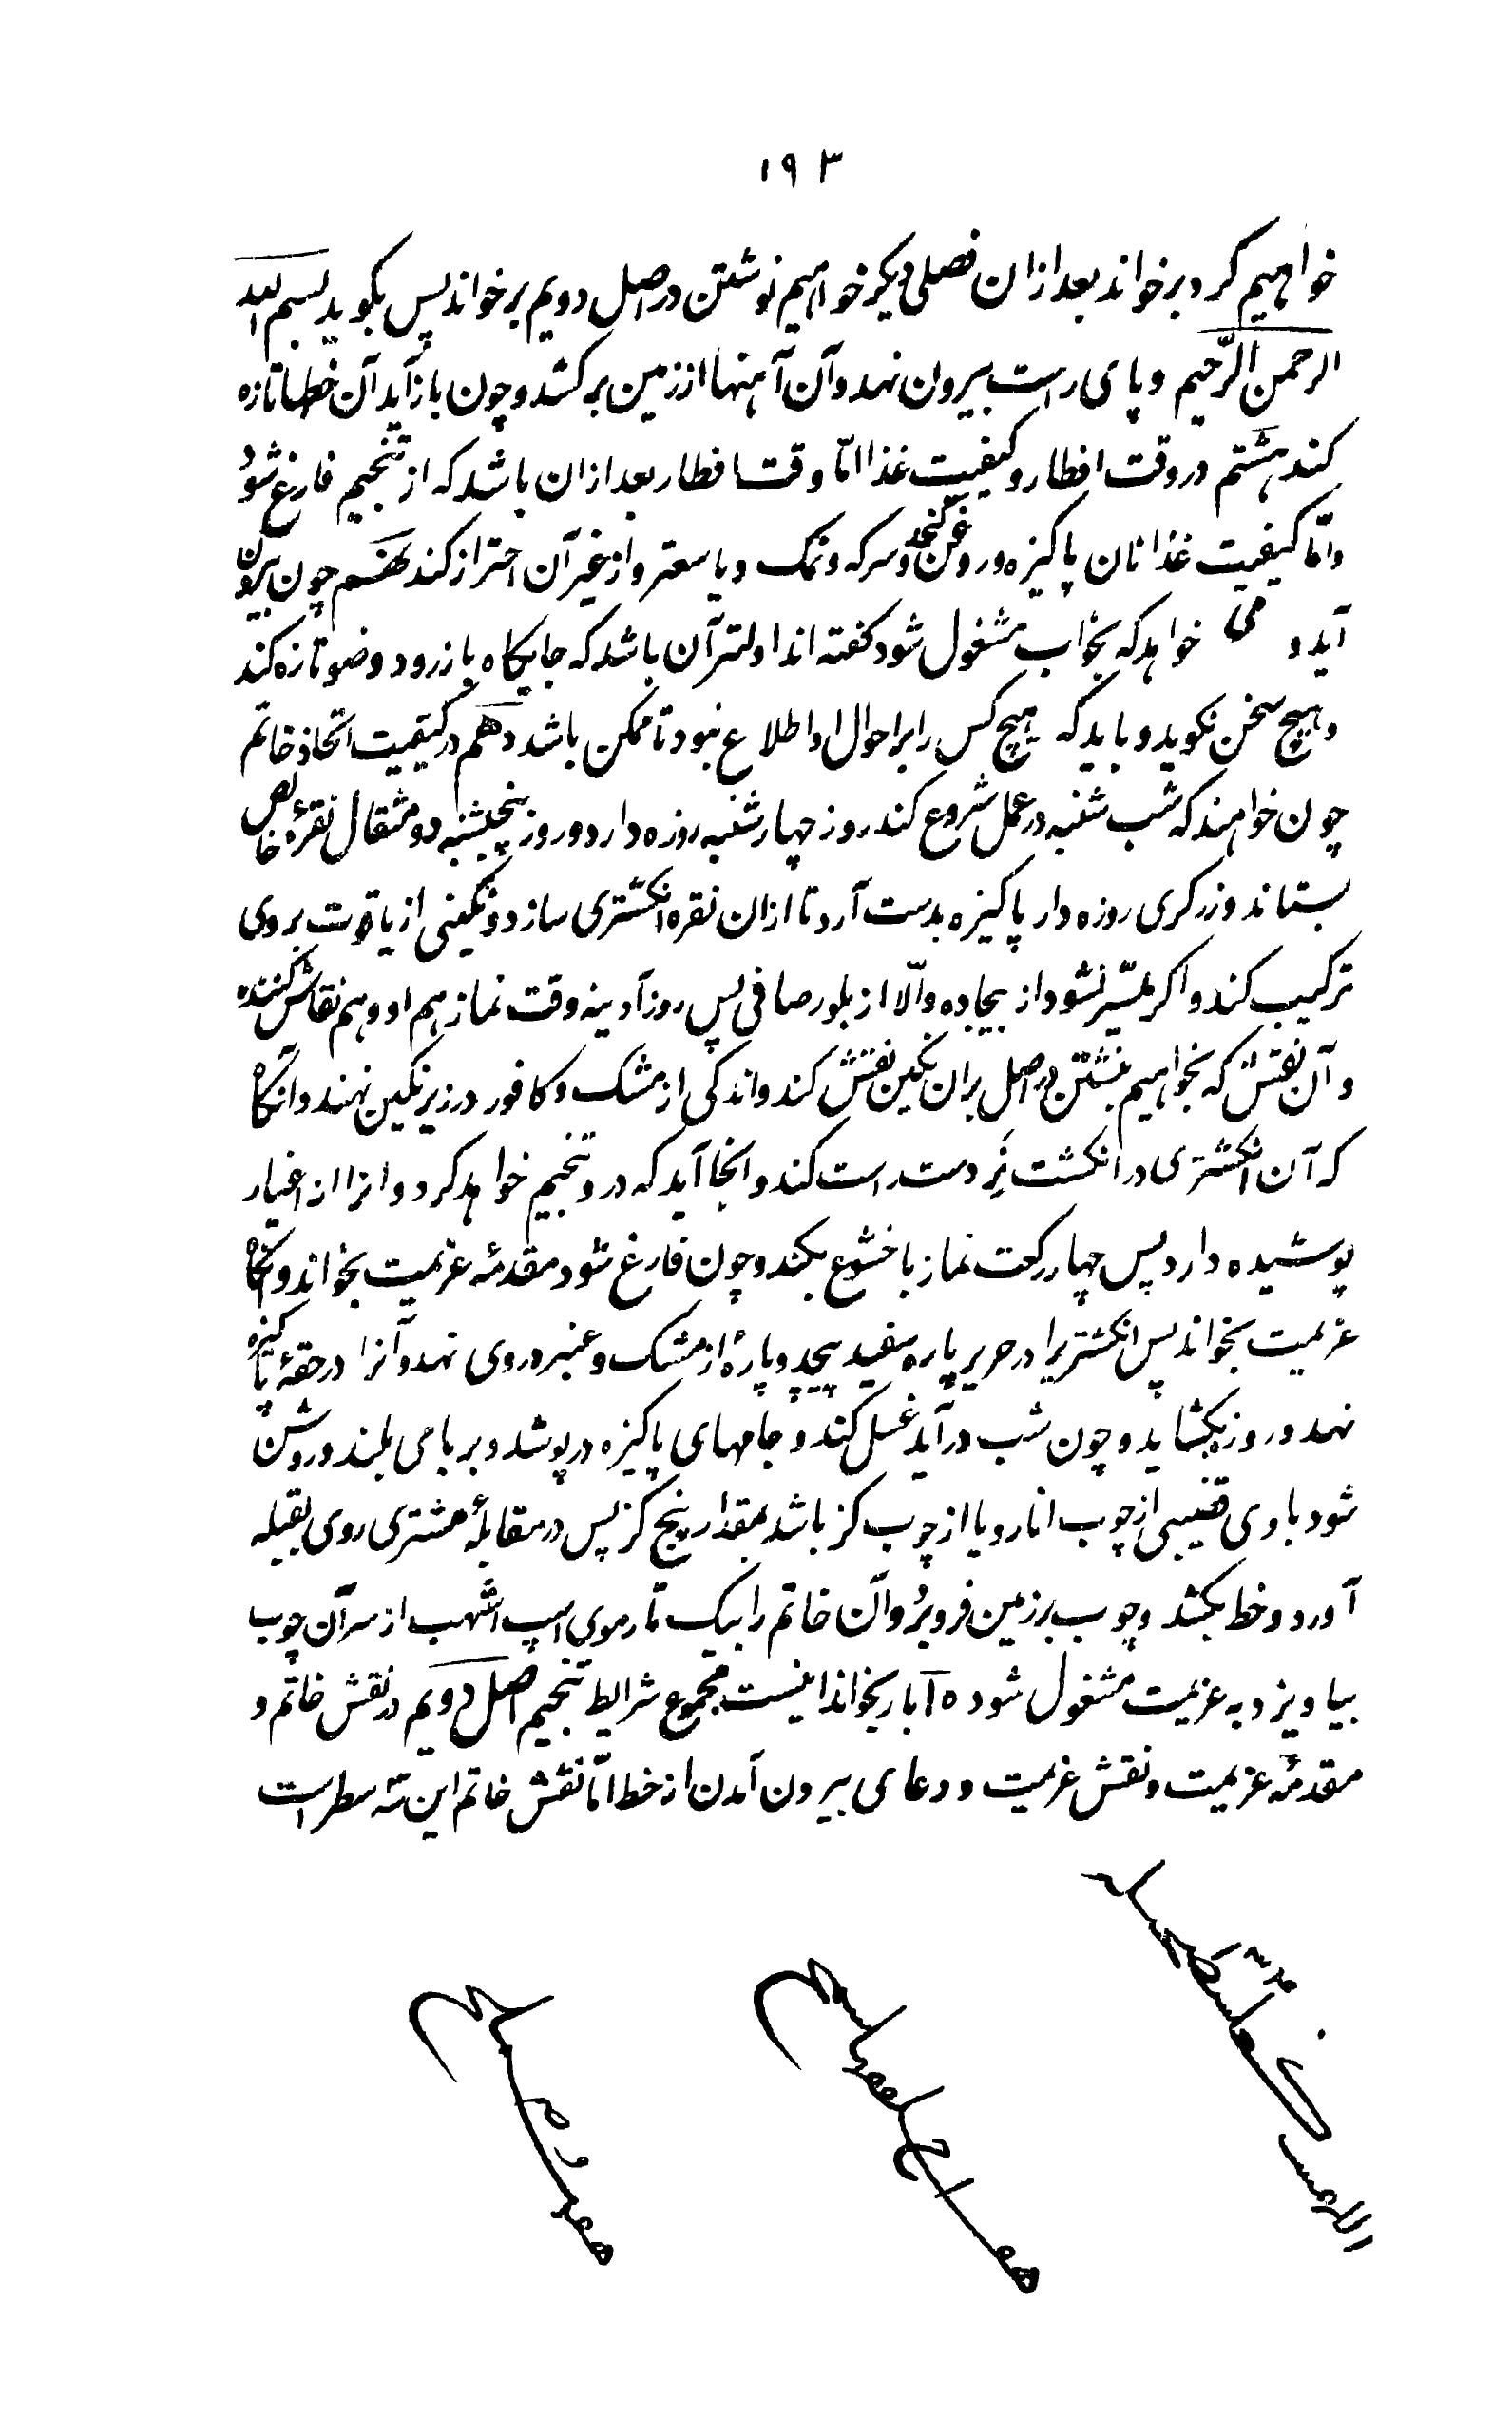 ۱۹۳
خواهیم کرد برخواند بعد ازان فصلی دیکر خواهیم نوشتن در اصل دویم برخواند پس بکوید بسم الله
الرحمن الرّحیم و پای راست بیرون نهد و آن آهنها از زمین برکشد و چون باز آید آن خطها تازه
کند هشتم در وقت افطار و کیفیت غذا امّا وقت افطار بعد ازان باشد که از تنجیم فارغ شود
و امّا کیفیت غذا نان پاکیزه و روغن کنجد و سرکه و نمک و یا سعتر و از غیر آن احتراز کند نهم چون بیرون
آید و می خواهد که بخواب مشغول شود کفته اند اولتر آن باشد که جایکاه باز رود و وضو تازه کند
و هیچ سخن نکوید و باید که هیچ کس را بر احوال او اطلاع نبود تا ممکن باشد دهم در کیفیت اتخاذ خاتم
چون خواهند که شب شنبه در عمل شروع کند روز چهارشنبه روزه دارد و روز پنجشنبه دو مثقال نقرهٔ خالص
بستاند و زرکری روزه دار پاکیزه بدست آرد تا ازان نقره انکشتری سازد و نکینی از یاقوت بر وی
ترکیب کند و اکر میسّر نشود از بیجاده و الّا از بلور صافی پس روز آدینه وقت نماز هم او و هم نقاش کننده
و آن نقش که بخواهیم نبشتن در اصل بران نکین نقش کند و اندکی از مشک و کافور در زیر نکین نهند و آنکاه
که آن انکشتری در انکشت نر دست راست کند و انجا آید که درو تنجیم خواهد کرد و انرا از اغیار
پوشیده دارد پس چهار رکعت نماز با خشوع بکند و چون فارغ شود مقدمهٔ عزیمت بخواند و آنکاه
عزیمت بخواند پس انکشتریرا در حریر پاره سفید پیچد و پارهٔ از مشک و عنبر در وی نهد و آنرا در حقهٔ پاکیزه
نهد و روز بکشاید و چون شب درآید غسل کند و جامهای پاکیزه درپوشد و بر بامی بلند و روشن
شود با وی قضیبی از چوب انار و یا از چوب کز باشد بمقدار پنج کز پس در مقابلهٔ مشتری روی بقبله
آورد و خط بکشد و چوب بر زمین فرو برد و آن خاتم را بیک تار موی اسپ اشهب از سر آن چوب
بیاویزد و به عزیمت مشغول شود بار بخواند اینست مجموع شرایط تنجیم اصل دویم در نقش خاتم و
مقدمهٔ عزیمت و نقش عزیمت و دعای بیرون آمدن از خط امّا نقش خاتم این سه سطر است